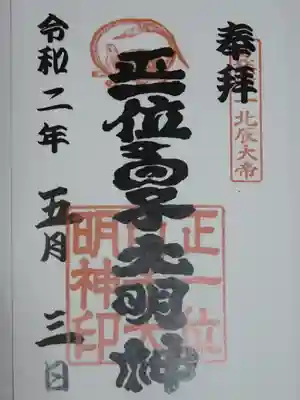 奉拝
北辰大帝
正一位 大明神
正一位
明神印
令和二年 五月 三日